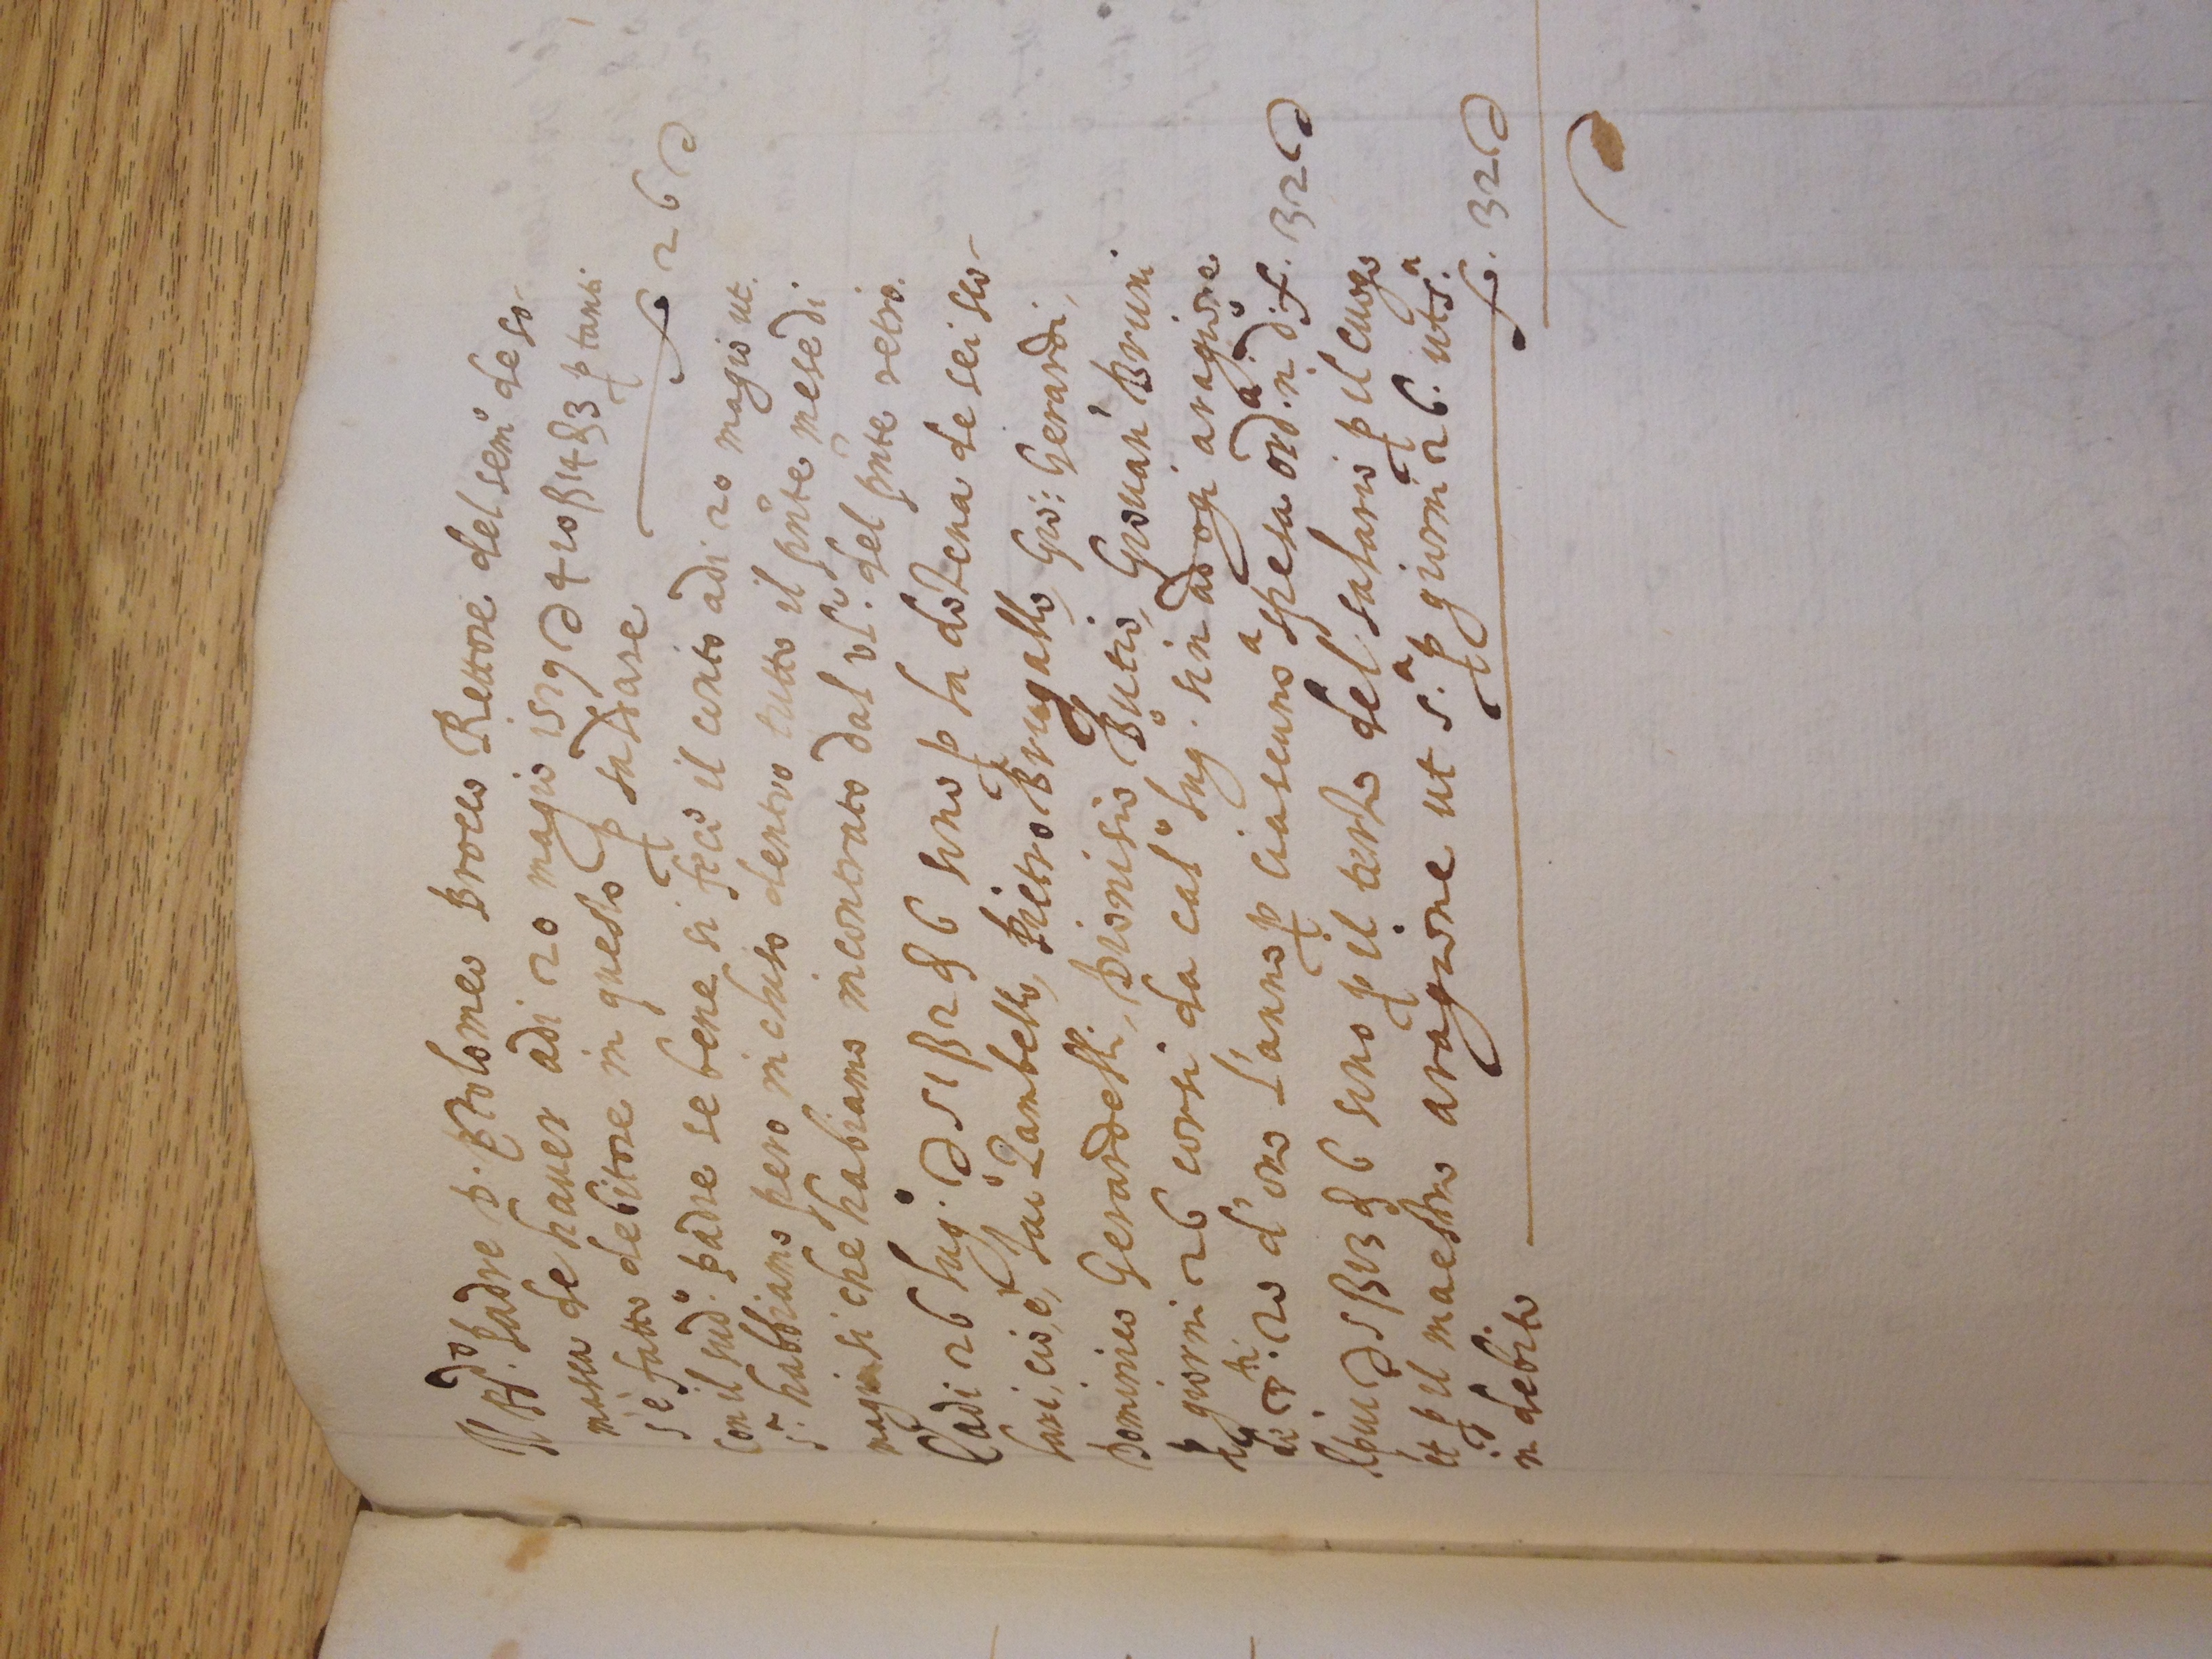 Il R.do Padre D. Ptolomeo Broco Rettore del sem.o de so
masca de haver adi 20 magio 1579 D 420 β 14 & 3 p tanti
s'é fatto debitore in questo p saldare f 26 D
con il sud.o padre se bene si feci il conto adi 20 magio ut.
s.a habbiamo pero incluso dentro tutto il pnte mese di
magio si che habiamo incontrato dal ult.o del pnte retro.
Cadi 26 lug.o D 51 β 2 & 6 sono p la dozena de sei sco
lari, cio, é, Zambello, Pietro Brugallo, Gio: Gerardi,
Domineo Gerardelli, Dionisio Butio, Giovan' Bruni
p giorni 26 corsi da cal.o lug.o sin ad ogi a ragione
di 20 d'oro l'anno p ciascuno a spesa ord.a in di f. 32 D
E piu D 5 β 13 & 6 sono p il terzo del salario p il cuogo
et p il maestro a ragione ut s.a p giorni 26. ut s.a
in debito f. 32 D